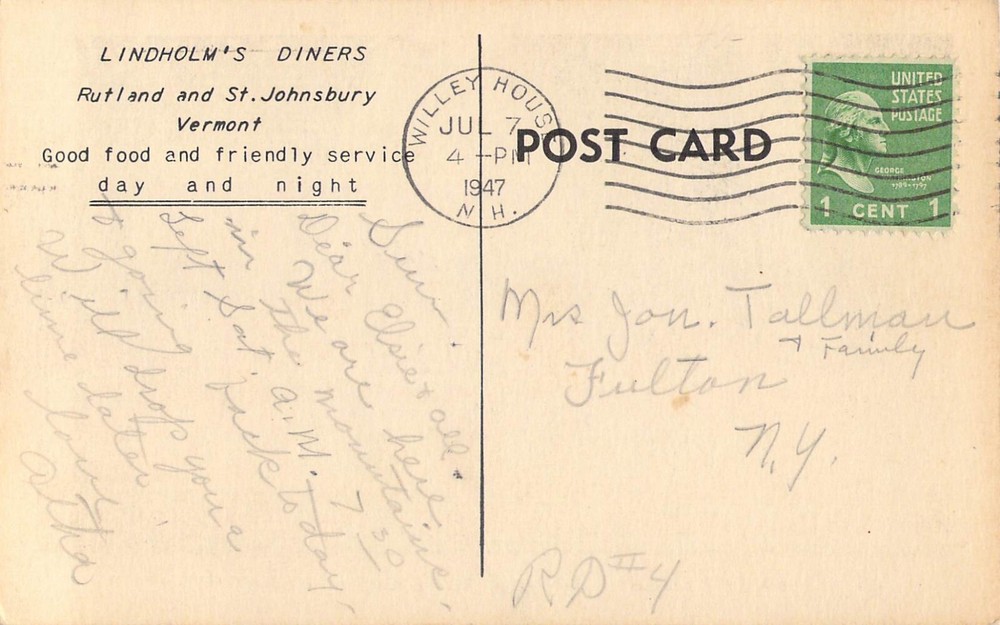 LINDHOLM'S DINERS
Rutland and St. Johnsbury
Vermont
Good food and friendly service
day and night
WILLEY HOUSE
JUL 7
4 -PM
1947
N.H.
POST CARD
UNITED
STATES
POSTAGE
GEORGE
WASHINGTON
1789-1797
1 CENT 1
Sun.
Dear Elsie & all.
We are here
in the mountains.
Left Sat. a.m. 7 30
& going back today.
Will drop you a
line later
love
Altha
Mrs Jon. Tallman
& Family
Fulton
N.Y.
RD #4